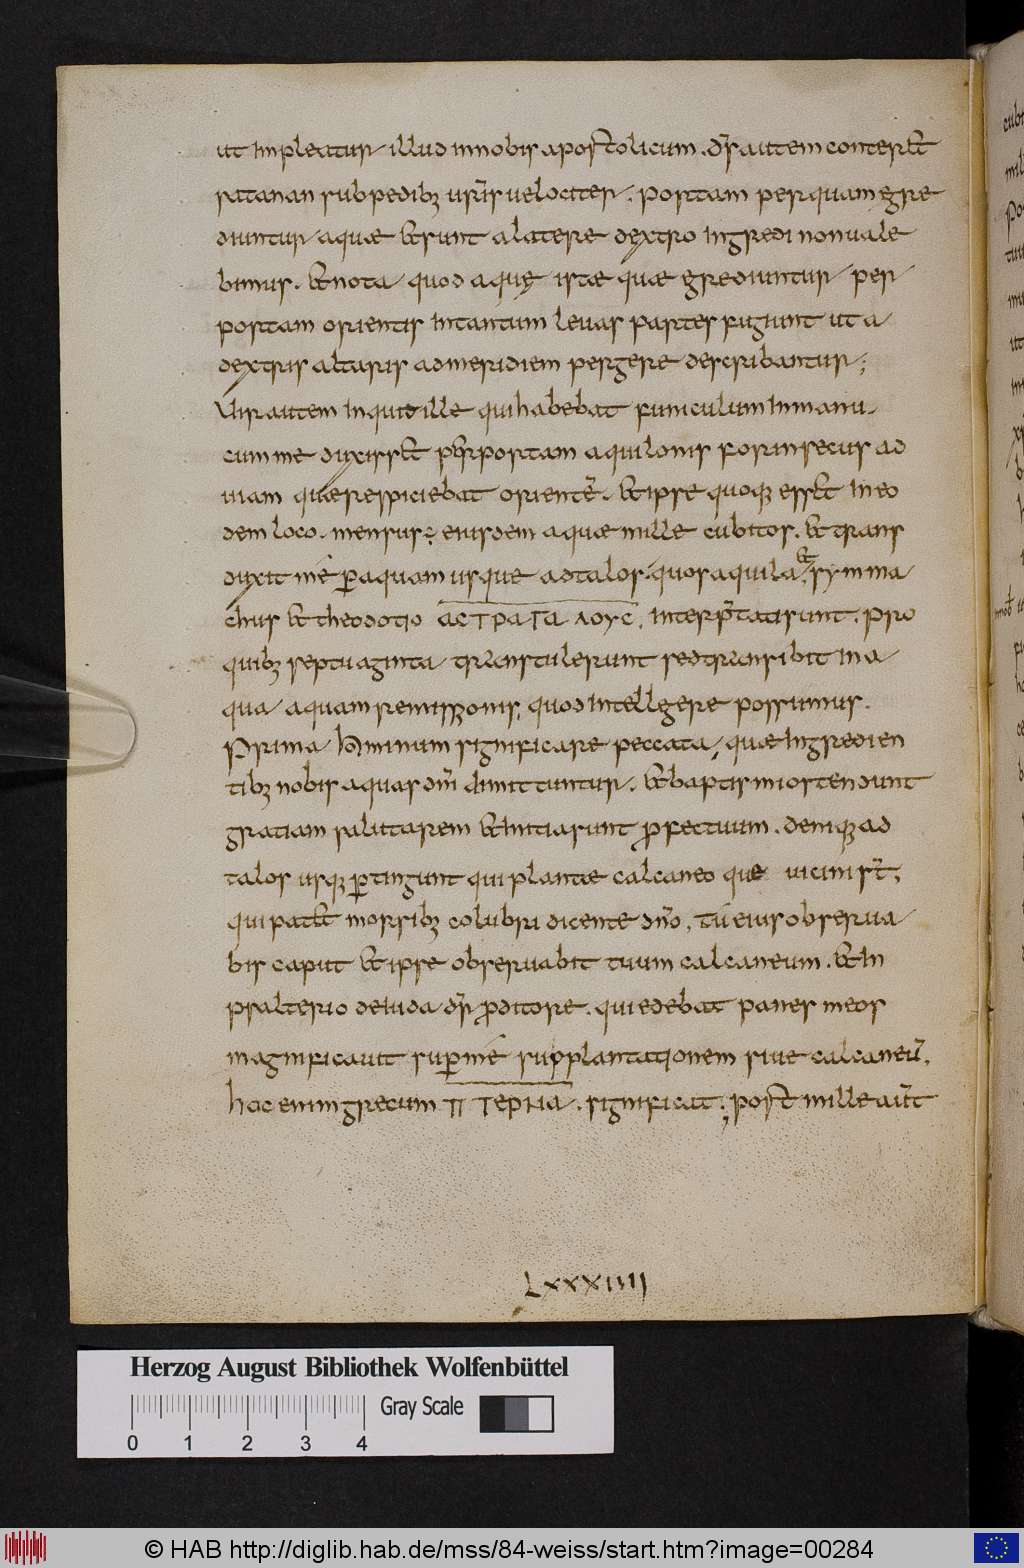 ut impleatur illud innobis apostolicum. ds̄ autem conteret
satanan subpedibꝫ urīs uelociter. portam perquam egre
diuntur aquae et sunt alatere dextro ingredi nonuale
bimus. et nota quod aquę istae quae grediuntur per
portam orientis intantum leuas partes fugiunt ut a
dextris altaris admeridiem pergere describantur;
Uir autem inquid ille qui habebat funiculum inmanu.
cum me duxisset per portam aquilonis forinsecus ad
uiam quae respiciebat orientē. et ipse quoqꝫ esset in eo
dem loco. mensus ÷ eiusdem aquae mille cubitos. et trans
duxit me ꝑ aquam usque ad talos. quos aquila et symma
chus et theodotio ΑϹΤΡΑΓΑΛΟΥϹ, interp̄tati sunt. pro
quibꝫ septuaginta transtulerunt sed transibit in a
qua aquam remissionis, quod intellegere possumus.
Prima hominum significare peccata, quae ingredien
tibꝫ nobis aquas dnī dimittuntur. et baptismi ostendunt
gratiam salutarem et initia sunt ꝓfectuum. deniqꝫ ad
talos usqꝫ ꝑtingunt qui plantae calcaneo que uicini st̄,
qui patet morsibꝫ colubri dicente dnō, tu eius obserua
bis caput et ipse obseruabit tuum calcaneum. et in
psalterio de iuda dnī ꝓditore. qui edebat panes meos
magnificauit suꝑ me supplantationem siue calcaneū,
hoc enim grecum ΠΤΕΡΝΑ. significat; post mille aūt
LXXXIIII
Herzog August Bibliothek Wolfenbüttel
Gray Scale
0 1 2 3 4
© HAB http://diglib.hab.de/mss/84-weiss/start.htm?image=00284